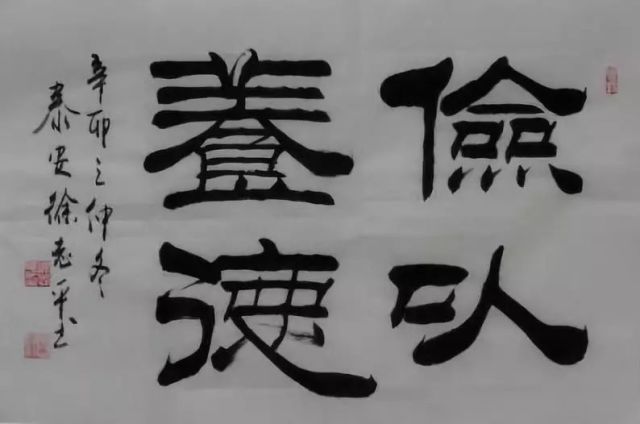 儉以
養德
辛卯之仲冬
泰安徐志平书